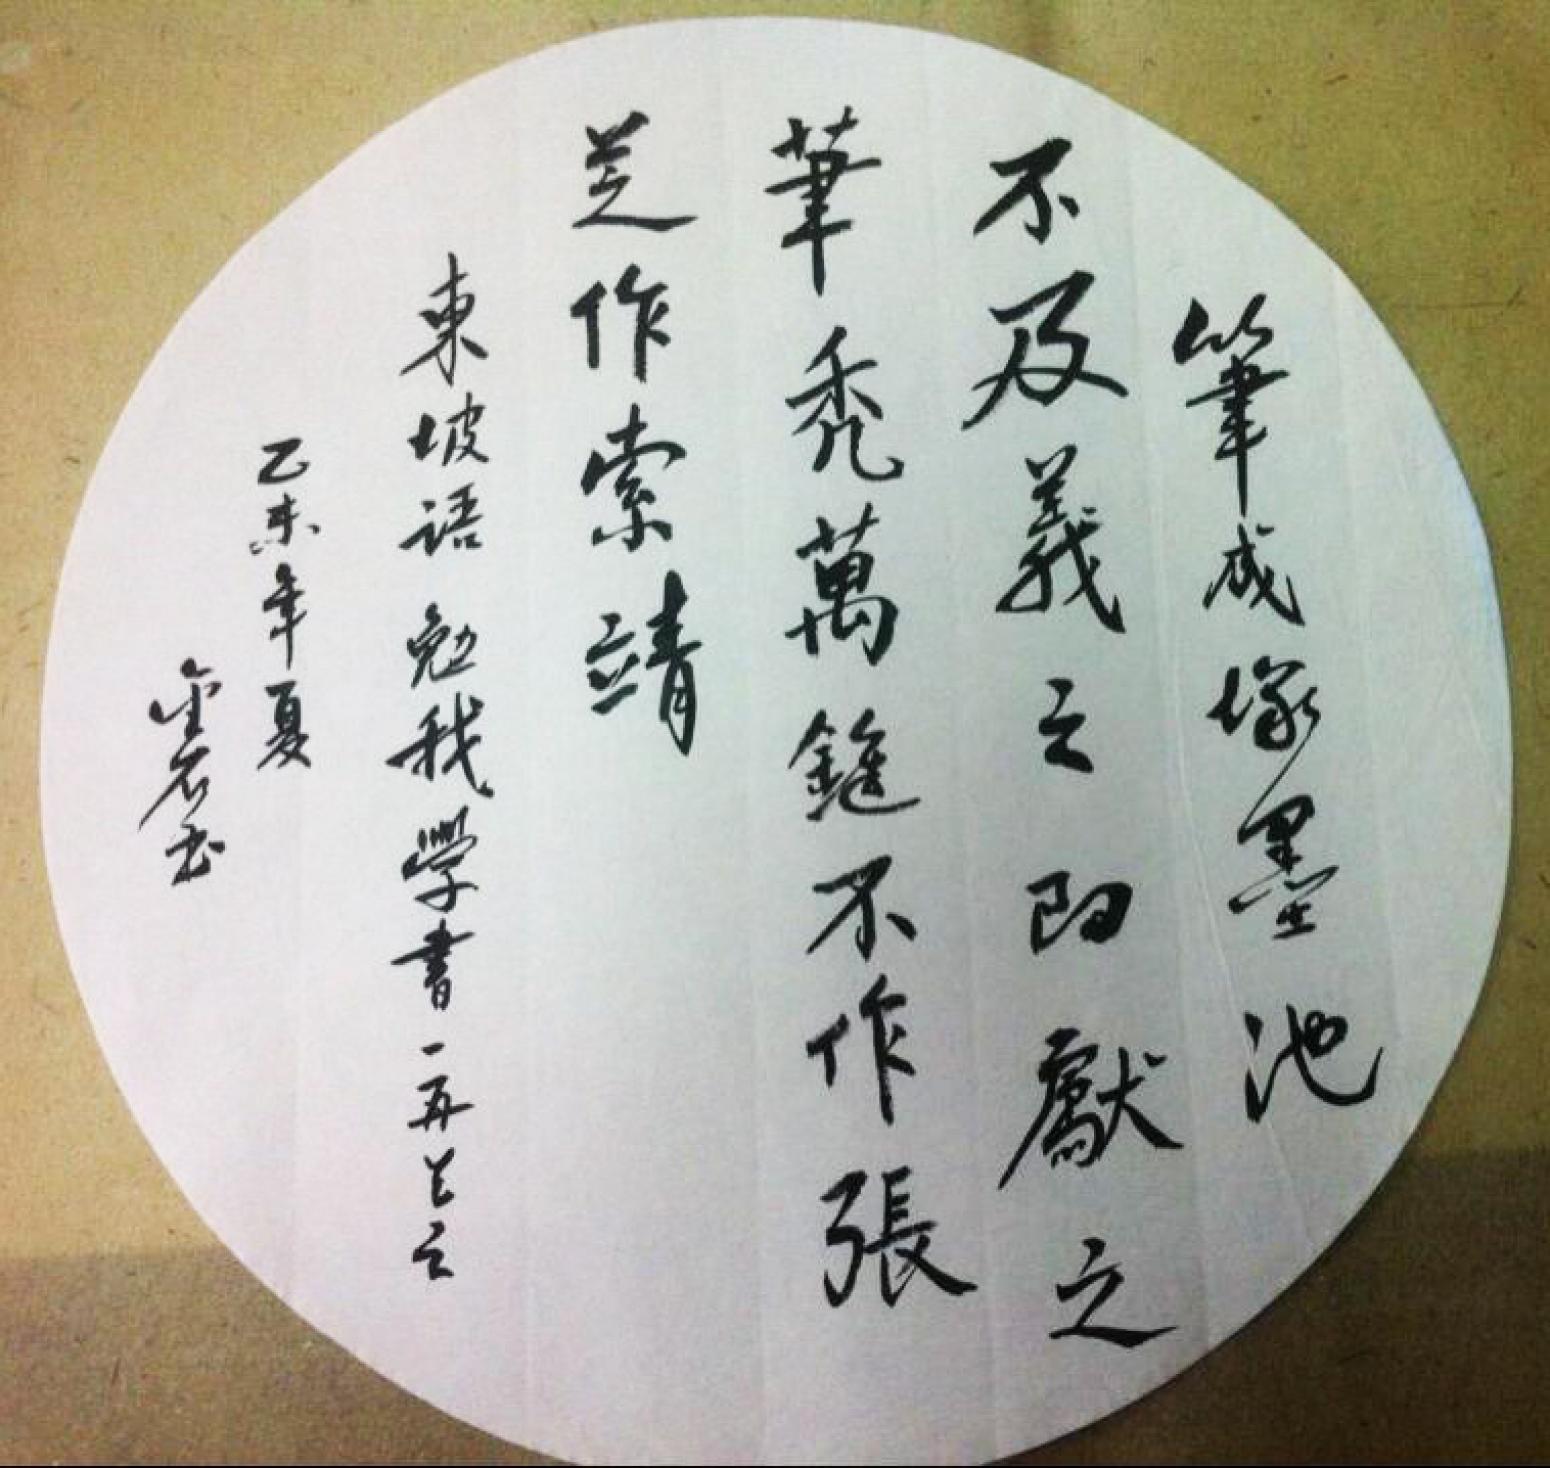 筆成塚墨池
不及羲之即獻之
筆秃萬鋌不作張
芝作索靖
東坡語勉我學書一再之
乙未年夏
石书